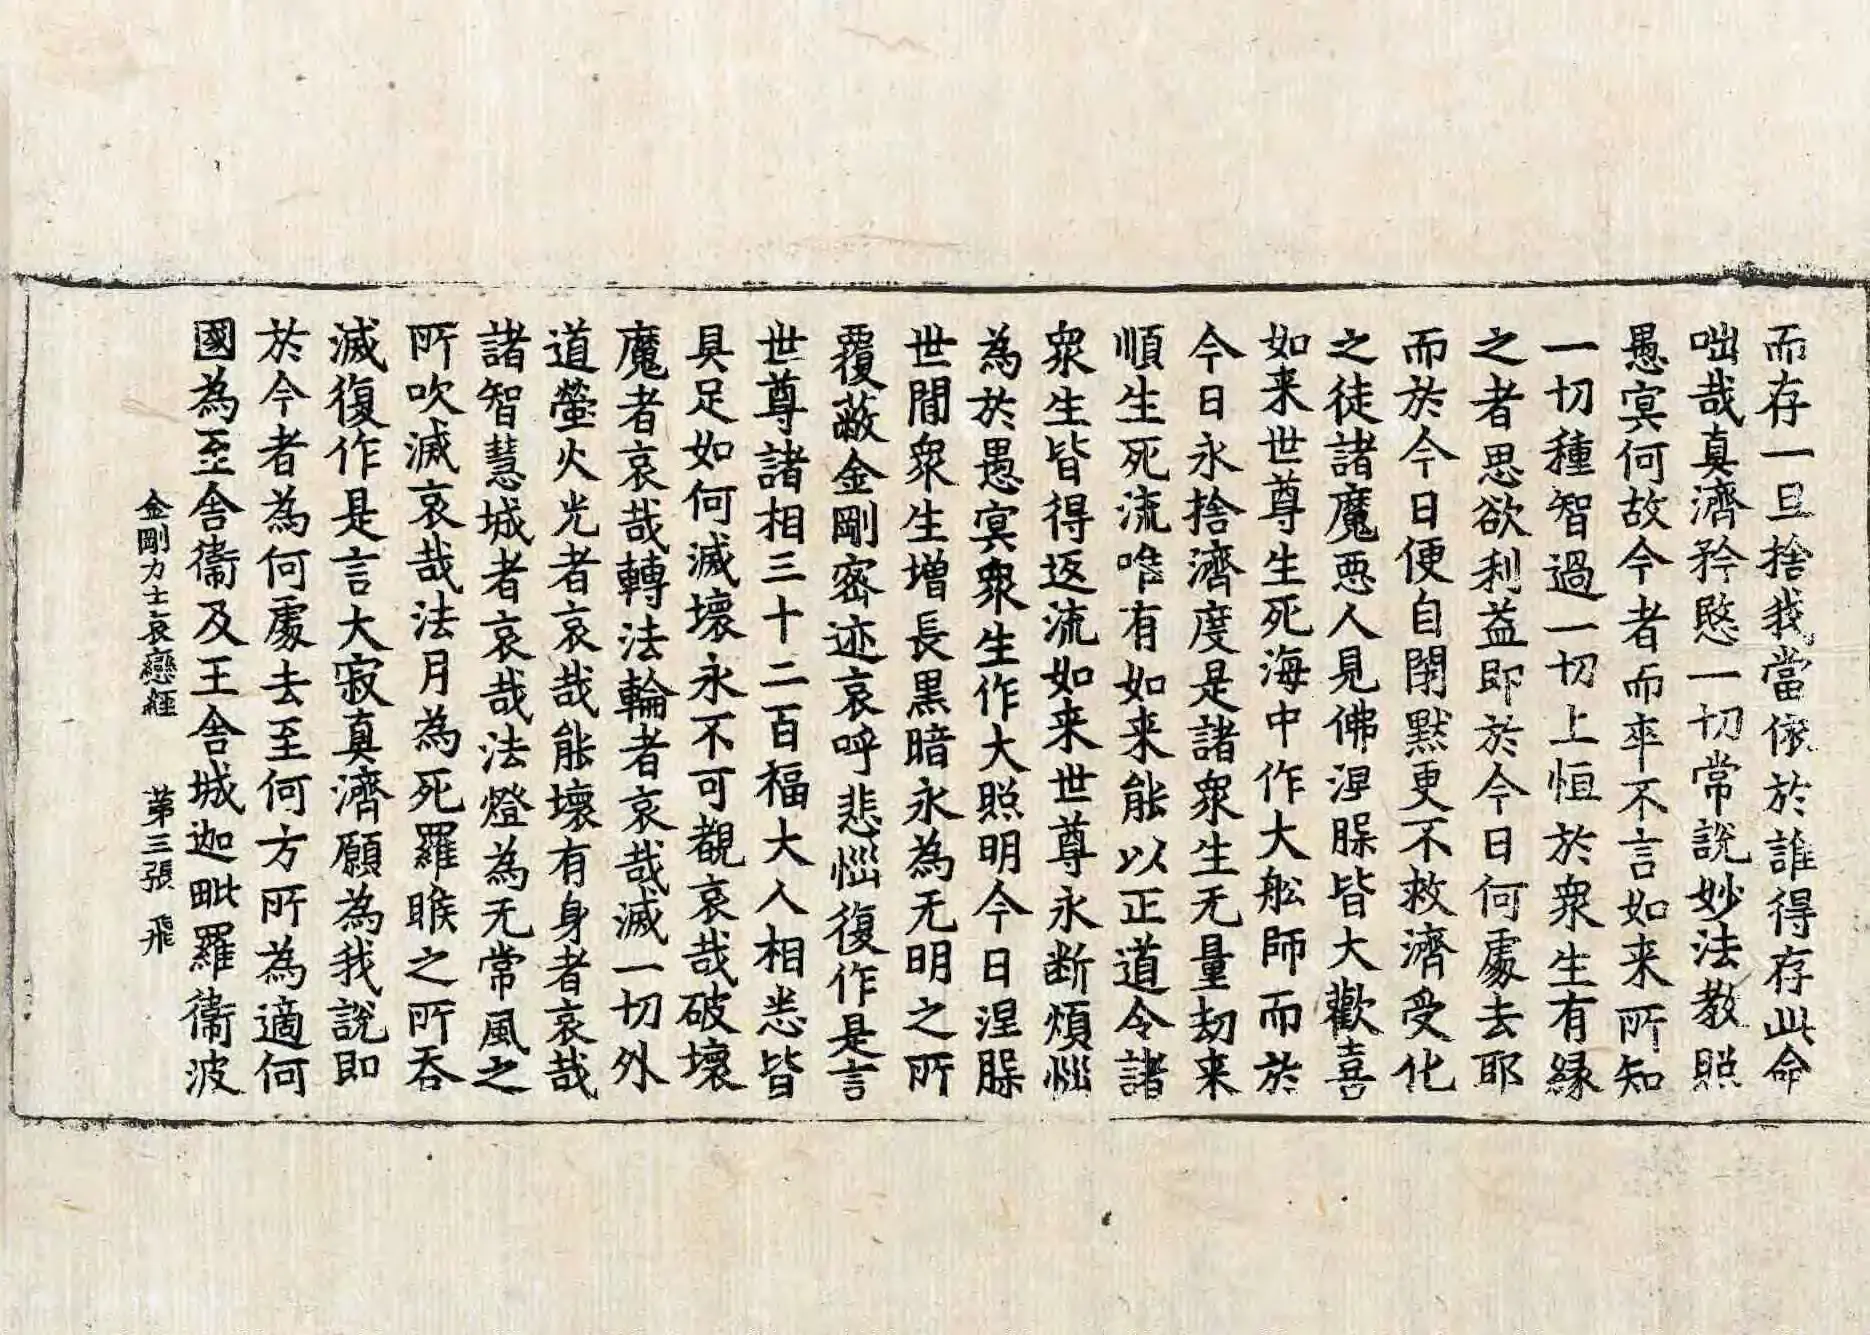 而存一旦捨我當依於誰得存此命
咄哉真濟矜愍一切常說妙法教照
愚冥何故今者而卒不言如来所知
一切種智過一切上恒於衆生有縁
之者思欲利益即於今日何處去耶
而於今日便自閇默更不救濟受化
之徒諸魔惡人見佛涅槃皆大歡喜
如来世尊生死海中作大舩師而於
今日永捨濟度是諸衆生无量劫来
順生死流唯有如来能以正道令諸
衆生皆得返流如来世尊永断煩惱
為於愚冥衆生作大照明今日涅槃
世間衆生增長黒暗永為无明之所
覆蔽金剛密迹哀呼悲惱復作是言
世尊諸相三十二百福大人相悉皆
具足如何滅壞永不可覩哀哉破壞
魔者哀哉轉法輪者哀哉滅一切外
道螢火光者哀哉能壞有身者哀哉
諸智慧城者哀哉法燈為无常風之
所吹滅哀哉法月為死羅睺之所吞
滅復作是言大寂真濟願為我說即
於今者為何處去至何方所為適何
國為至舎衞及王舎城迦毗羅衞波
金剛力士哀戀經 苐三張 飛